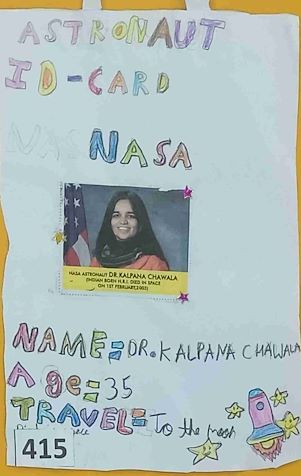 ASTRONAUT
ID-CARD
NASA
NASA ASTRONAUT DR.KALPANA CHAWALA
(INDIAN BOEN H.R.I. DIED IN SPACE
ON 1ST FEBRUARY,2003)
NAME=DR. KALPANA CHAWALA
Age=35
TRAVEL=To the moon
415